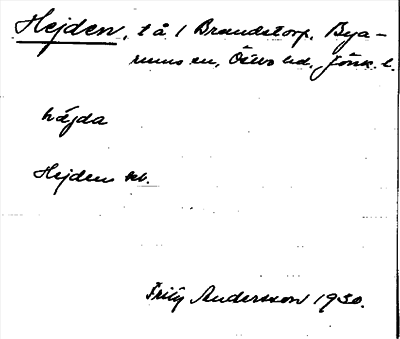 Hejden, t å 1 Brandstorp, Bya-
rums sn, Östbo hd, Jönk. l.
häjda
Hejdens kb.
Fritz Andersson 1930.